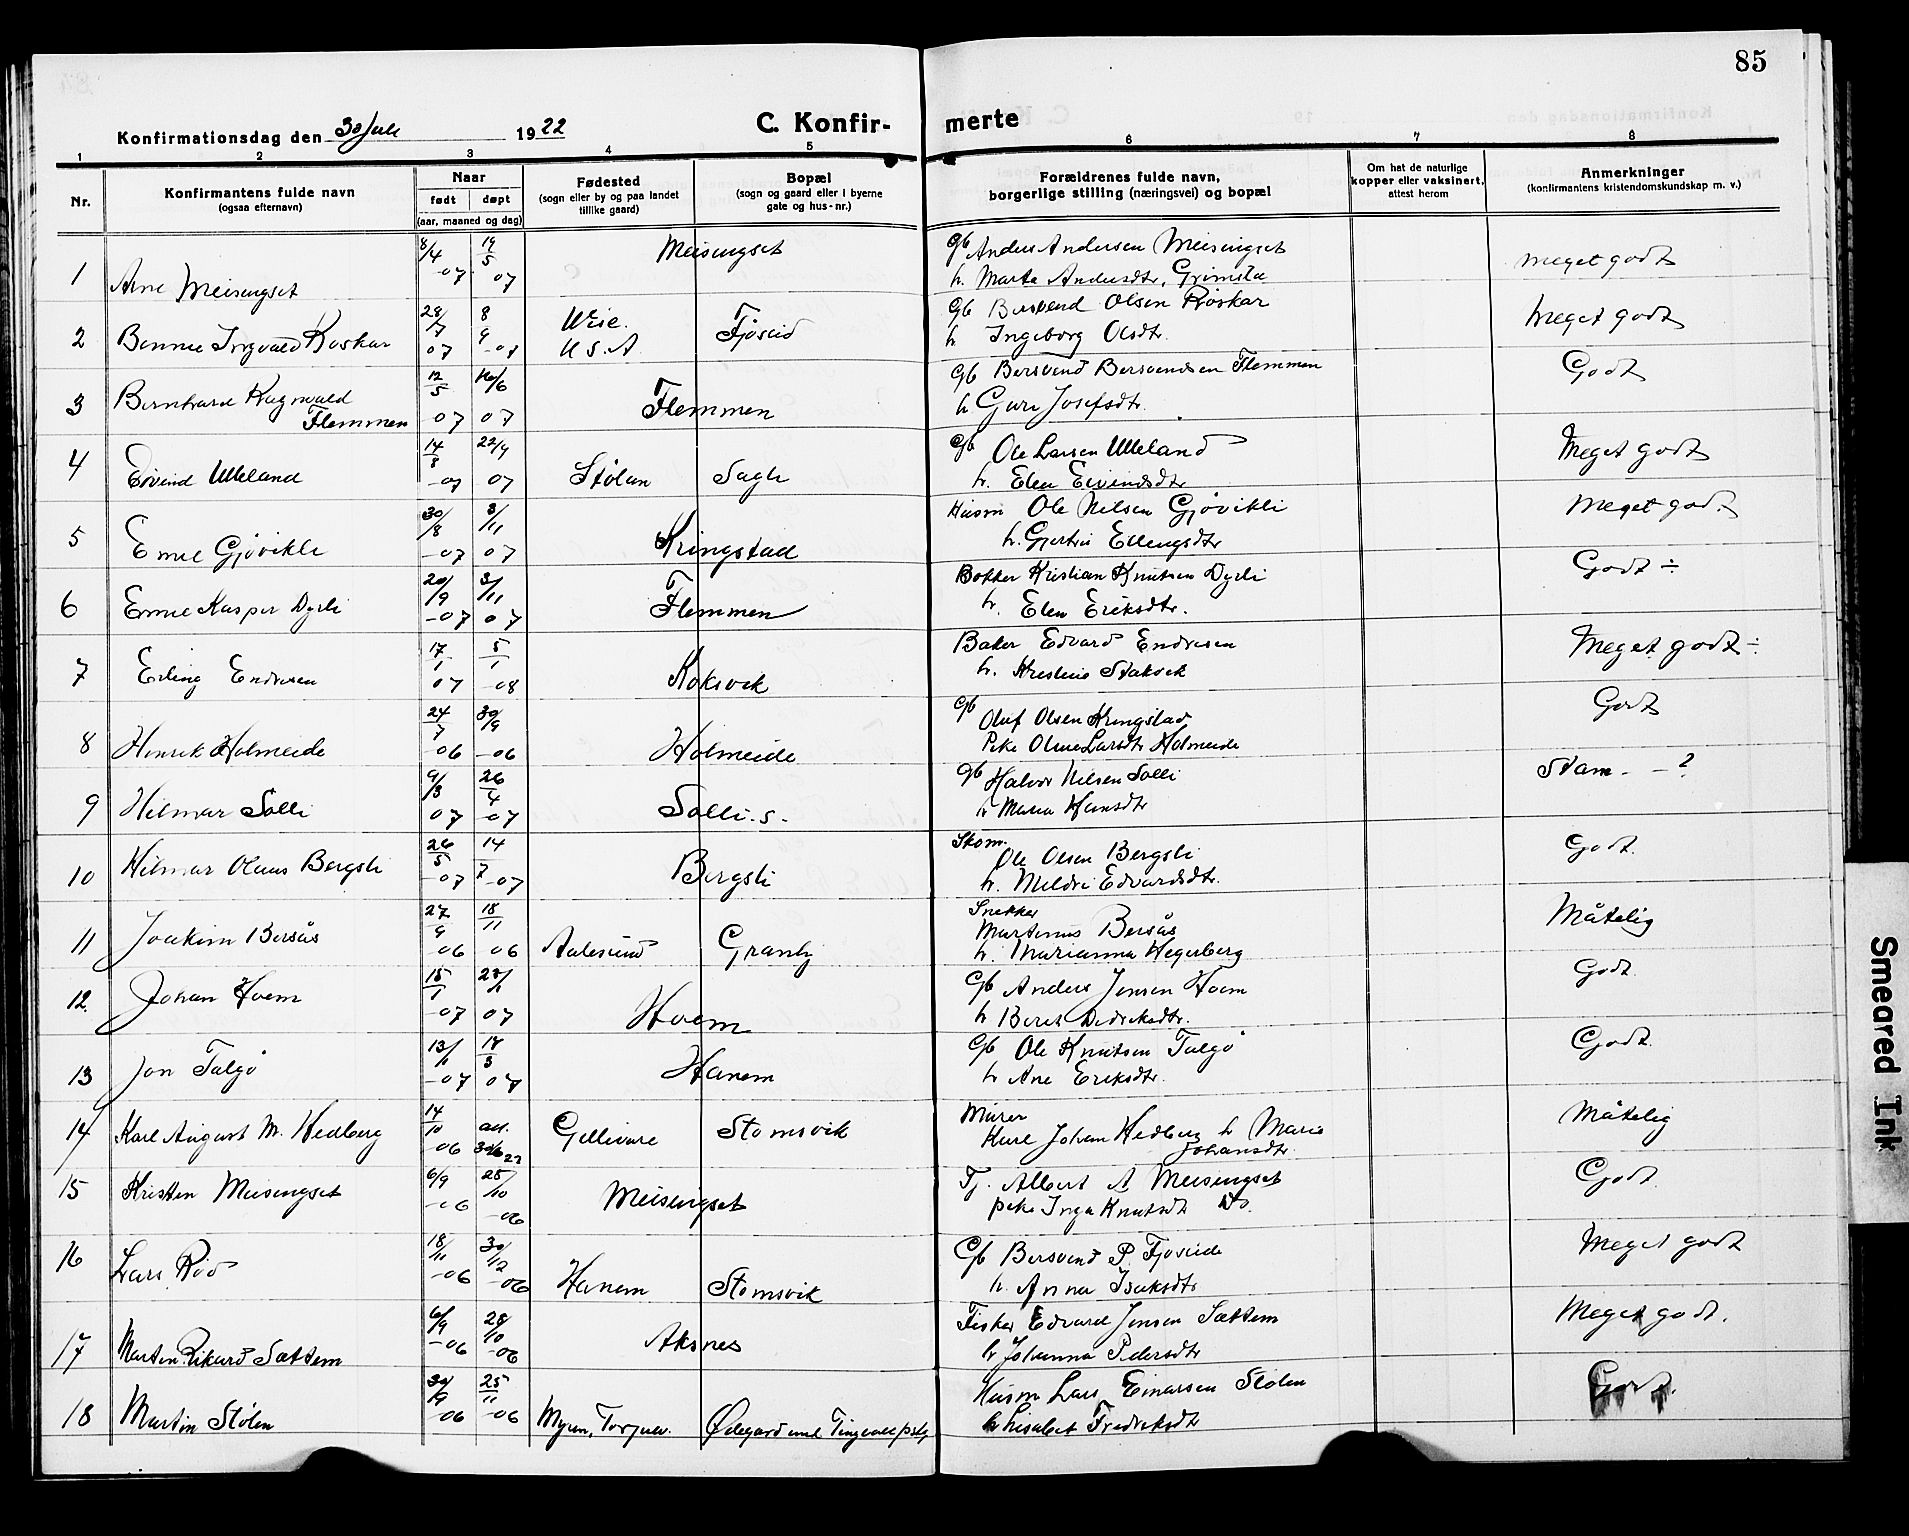 85
Konfirmationsdag den 30 Juli 1922
C. Konfir- merte
1 2 3 4 5 6 7 8
Nr.
Konfirmantens fulde navn
(ogsaa efternavn)
Naar
født døpt
(aar, maaned og dag)
Fødested
(sogn eller by og paa landet
tillike gaard)
Bopæl
(sogn og gaard eller i byerne
gate og hus-nr.)
Forældrenes fulde navn,
borgerlige stilling (næringsvei) og bopæl
Om hat de naturlige
kopper eller vaksinert,
attest herom
Anmerkninger
(konfirmantens kristendomskundskap m. v.)
1 Arne Meisingset 8/4 -07 19/5 07 Meisingset
Gb Anders Andersen Meisingset
h. Marta Andersdtr. Grimstad
meget godt
2 Bennie Ingvald Røskar 28/7 07 8/9 -07 Wise. U S. A Fjøseid
Gb Bersvend Olsen Røskar
h Ingeborg Olsdtr.
Meget godt
3 Bernhard Ragnvald
Flemmen 12/5 -07 16/6 07 Flemmen
Gb Bersvend Bersvendsen Flemmen
h Guri Josefsdtr.
Godt
4 Eivind Ulleland 14/8 -07 22/9 07 Stølan Sagli
Gb Ole Larsen Ulleland
h. Elen Eivindsdtr
Meget godt
5 Emil Gjøvikli 30/8 -07 3/11 07 Kringstad
Husm Ole Nilsen Gjøvikli
h. Gjertrü Ellengsdtr
Meget godt.
6 Emil Kasper Dyrli 20/9 -07 3/11 07 Flemmen
Bøkker Kristian Knutsen Dyrli
h. Elen Eriksdtr.
Godt ÷
7 Erling Endresen 17/1 07 5/1 -08 Koksvik
Baker Edvard Endresen
h. Kristine Stakvik
Meget godt ÷
8 Henrik Holmeide 24/7 -06 30/9 -06 Holmeide
Gb Oluf Olsen Kringstad
Pike Oline Larsdtr Holmeide
Godt
9 Hilmar Solli 9/3 07 26/4 -07 Solli. S.
Gb Halvor Nilsen Solli
h Maria Hansdtr
Stam. - ?
10 Hilmar Olaus Bergsli 26/5 -07 14/7 -07 Bergsli
Skom.
Ole Olsen Bergsli
h. Mildri Edvardsdtr.
Godt.
11 Joakim Bersås 27/9 06 18/11 06 Aalesund Granby
Snekker
Martinus Bersås
h. Marianna Hegerberg
Måtelig
12. Johan Hoem 15/1 -07 27/1 07 Hoem
Gb Anders Jonsen Hoem
h Beret Didriksdtr.
Godt.
13 Jon Talgø 13/1 -07 17/3 07 Hanem
Gb Ole Knutsen Talgø
h Ane Eriksdtr.
Godt.
14 Karl August M. Hedberg 14/10 -06 Gellivare Stomsvik
Murer
Karl Johan Hedberg h Maria
Johansdtr.
Måtelig
15 Kristen Meisingset 6/9 -06 28/10 -06 Meisingset
Tj. Albert A Meisingset
pike Inga Knutsdt
Godt.
16 Lars Røv 18/11 -06 30/12 -06 Hanem Stomsvik
Gb Bersvend P. Fjøseide
h. Anna Isaksdtr
Meget godt
17 Marten Rikard Sættem 6/9 -06 28/10 -06 Aksnes
Fisker Edvard Jensen Sættem
h Johanna Pedersdtr
Meget godt.
18 Martin Stølen 30/9 -06 25/11 -06 Ødegård
Husm Lars Einarsen Stølen
h Lisabet Fredriksdtr
Godt.
Smeared Ink